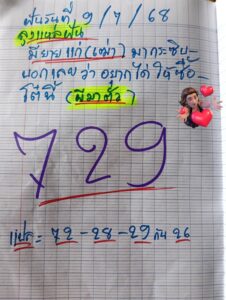 ฝันวันที่ 9/7/68
ลุงแปลฝัน
มียายแก่(เฒ่า) มากระซิบ
บอกเลขว่า อยากได้ ให้ซื้อ
โต๊นี้ (มีมาตัว)
729
แปล = 72-28-29 กัน 26